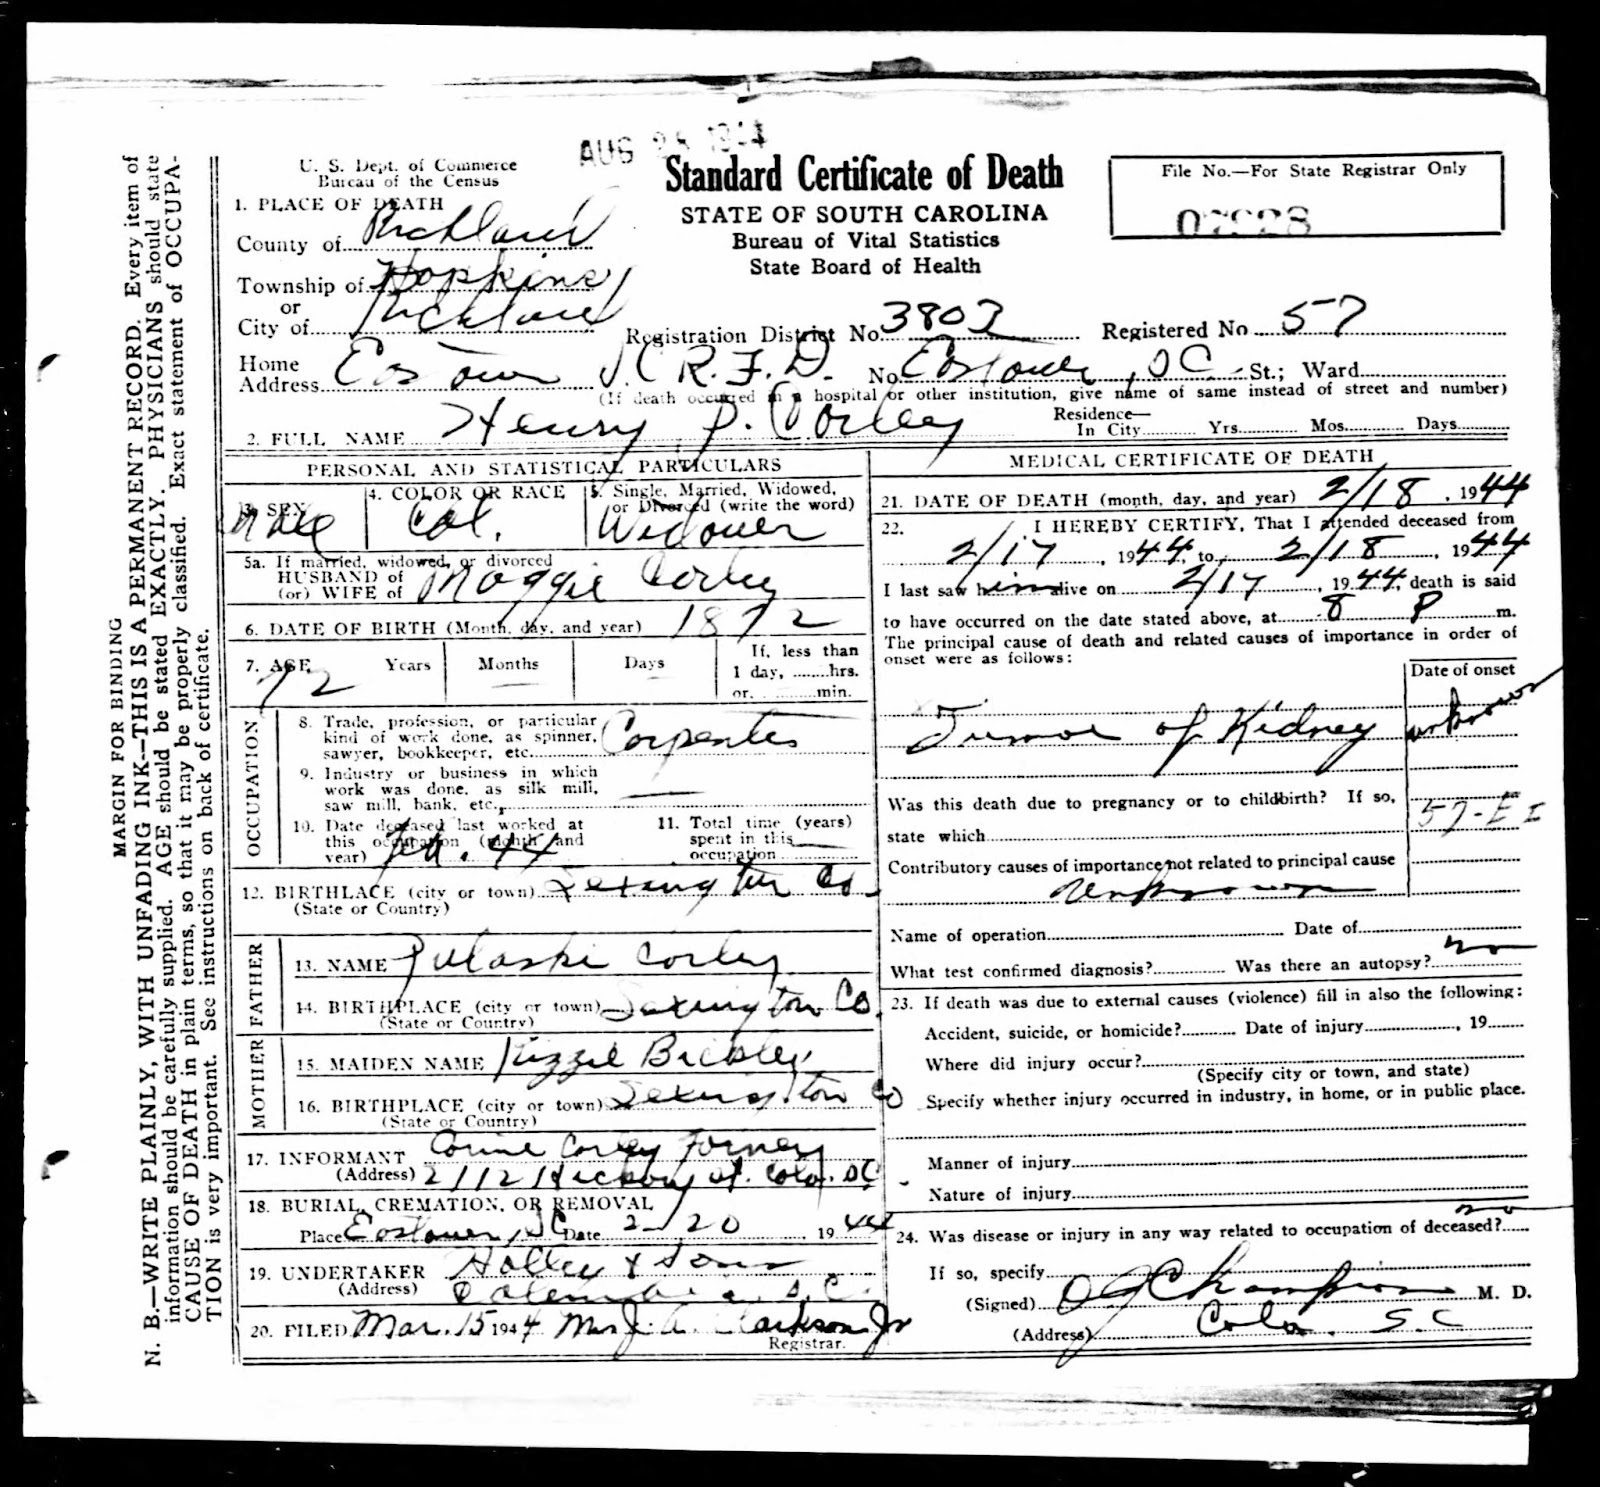 AUG 25 1944
U. S. Dept. of Commerce
Bureau of the Census
Standard Certificate of Death
STATE OF SOUTH CAROLINA
Bureau of Vital Statistics
State Board of Health
File No.—For State Registrar Only
1. PLACE OF DEATH
County of Richland
Township of Hopkins
or
City of Richland
Registration District No. 3803 Registered No 57
Home
Address Eastover S.C R.F.D. No. Eastover, SC St.; Ward
(If death occurred in a hospital or other institution, give name of same instead of street and number)
2. FULL NAME Henry P. Corley
Residence—
In City Yrs. Mos. Days
PERSONAL AND STATISTICAL PARTICULARS
3. SEX Male
4. COLOR OR RACE Col.
5. Single, Married, Widowed,
or Divorced (write the word)
Widower
5a. If married, widowed, or divorced
HUSBAND of
(or) WIFE of Maggie Corley
6. DATE OF BIRTH (Month, day, and year) 1872
7. AGE Years Months Days If less than
1 day, hrs.
or min.
72
OCCUPATION
8. Trade, profession, or particular
kind of work done, as spinner,
sawyer, bookkeeper, etc. Carpenter
9. Industry or business in which
work was done, as silk mill,
saw mill, bank, etc.
10. Date deceased last worked at
this occupation (month and
year) Feb. 44
11. Total time (years)
spent in this
occupation
12. BIRTHLACE (city or town) Lexington Co
(State or Country)
FATHER
13. NAME Pulaski Corley
14. BIRTHPLACE (city or town) Lexington Co.
(State or Country)
MOTHER
15. MAIDEN NAME Kizzie Bickley
16. BIRTHPLACE (city or town) Lexington Co
(State or Country)
17. INFORMANT Corley
(Address) 2112 St. Cola. SC.
18. BURIAL, CREMATION, OR REMOVAL
Place Eastover, SC Date 2-20 1944
19. UNDERTAKER & Sons
(Address) Columbia, S.C.
20. FILED Mar. 15 1944 Mrs J. A. Clarkson Jr
Registrar.
MEDICAL CERTIFICATE OF DEATH
21. DATE OF DEATH (month, day, and year) 2/18, 1944
22. I HEREBY CERTIFY, That I attended deceased from
2/17, 1944, to 2/18, 1944
I last saw him alive on 2/17, 1944, death is said
to have occurred on the date stated above, at 8 P m.
The principal cause of death and related causes of importance in order of
onset were as follows:
Date of onset
Tumor of Kidney unknown
Was this death due to pregnancy or to childbirth? If so,
state which
57-E
Contributory causes of importance not related to principal cause
unknown
Name of operation Date of
What test confirmed diagnosis? Was there an autopsy? no
23. If death was due to external causes (violence) fill in also the following:
Accident, suicide, or homicide? Date of injury, 19
Where did injury occur?
(Specify city or town, and state)
Specify whether injury occurred in industry, in home, or in public place.
Manner of injury
Nature of injury
24. Was disease or injury in any way related to occupation of deceased? no
If so, specify
(Signed) Champion M. D.
(Address) Cola. S.C
MARGIN FOR BINDING
N. B.—WRITE PLAINLY, WITH UNFADING INK—THIS IS A PERMANENT RECORD. Every item of
information should be carefully supplied. AGE should be stated EXACTLY. PHYSICIANS should state
CAUSE OF DEATH in plain terms, so that it may be properly classified. Exact statement of OCCUPA-
TION is very important. See instructions on back of certificate.